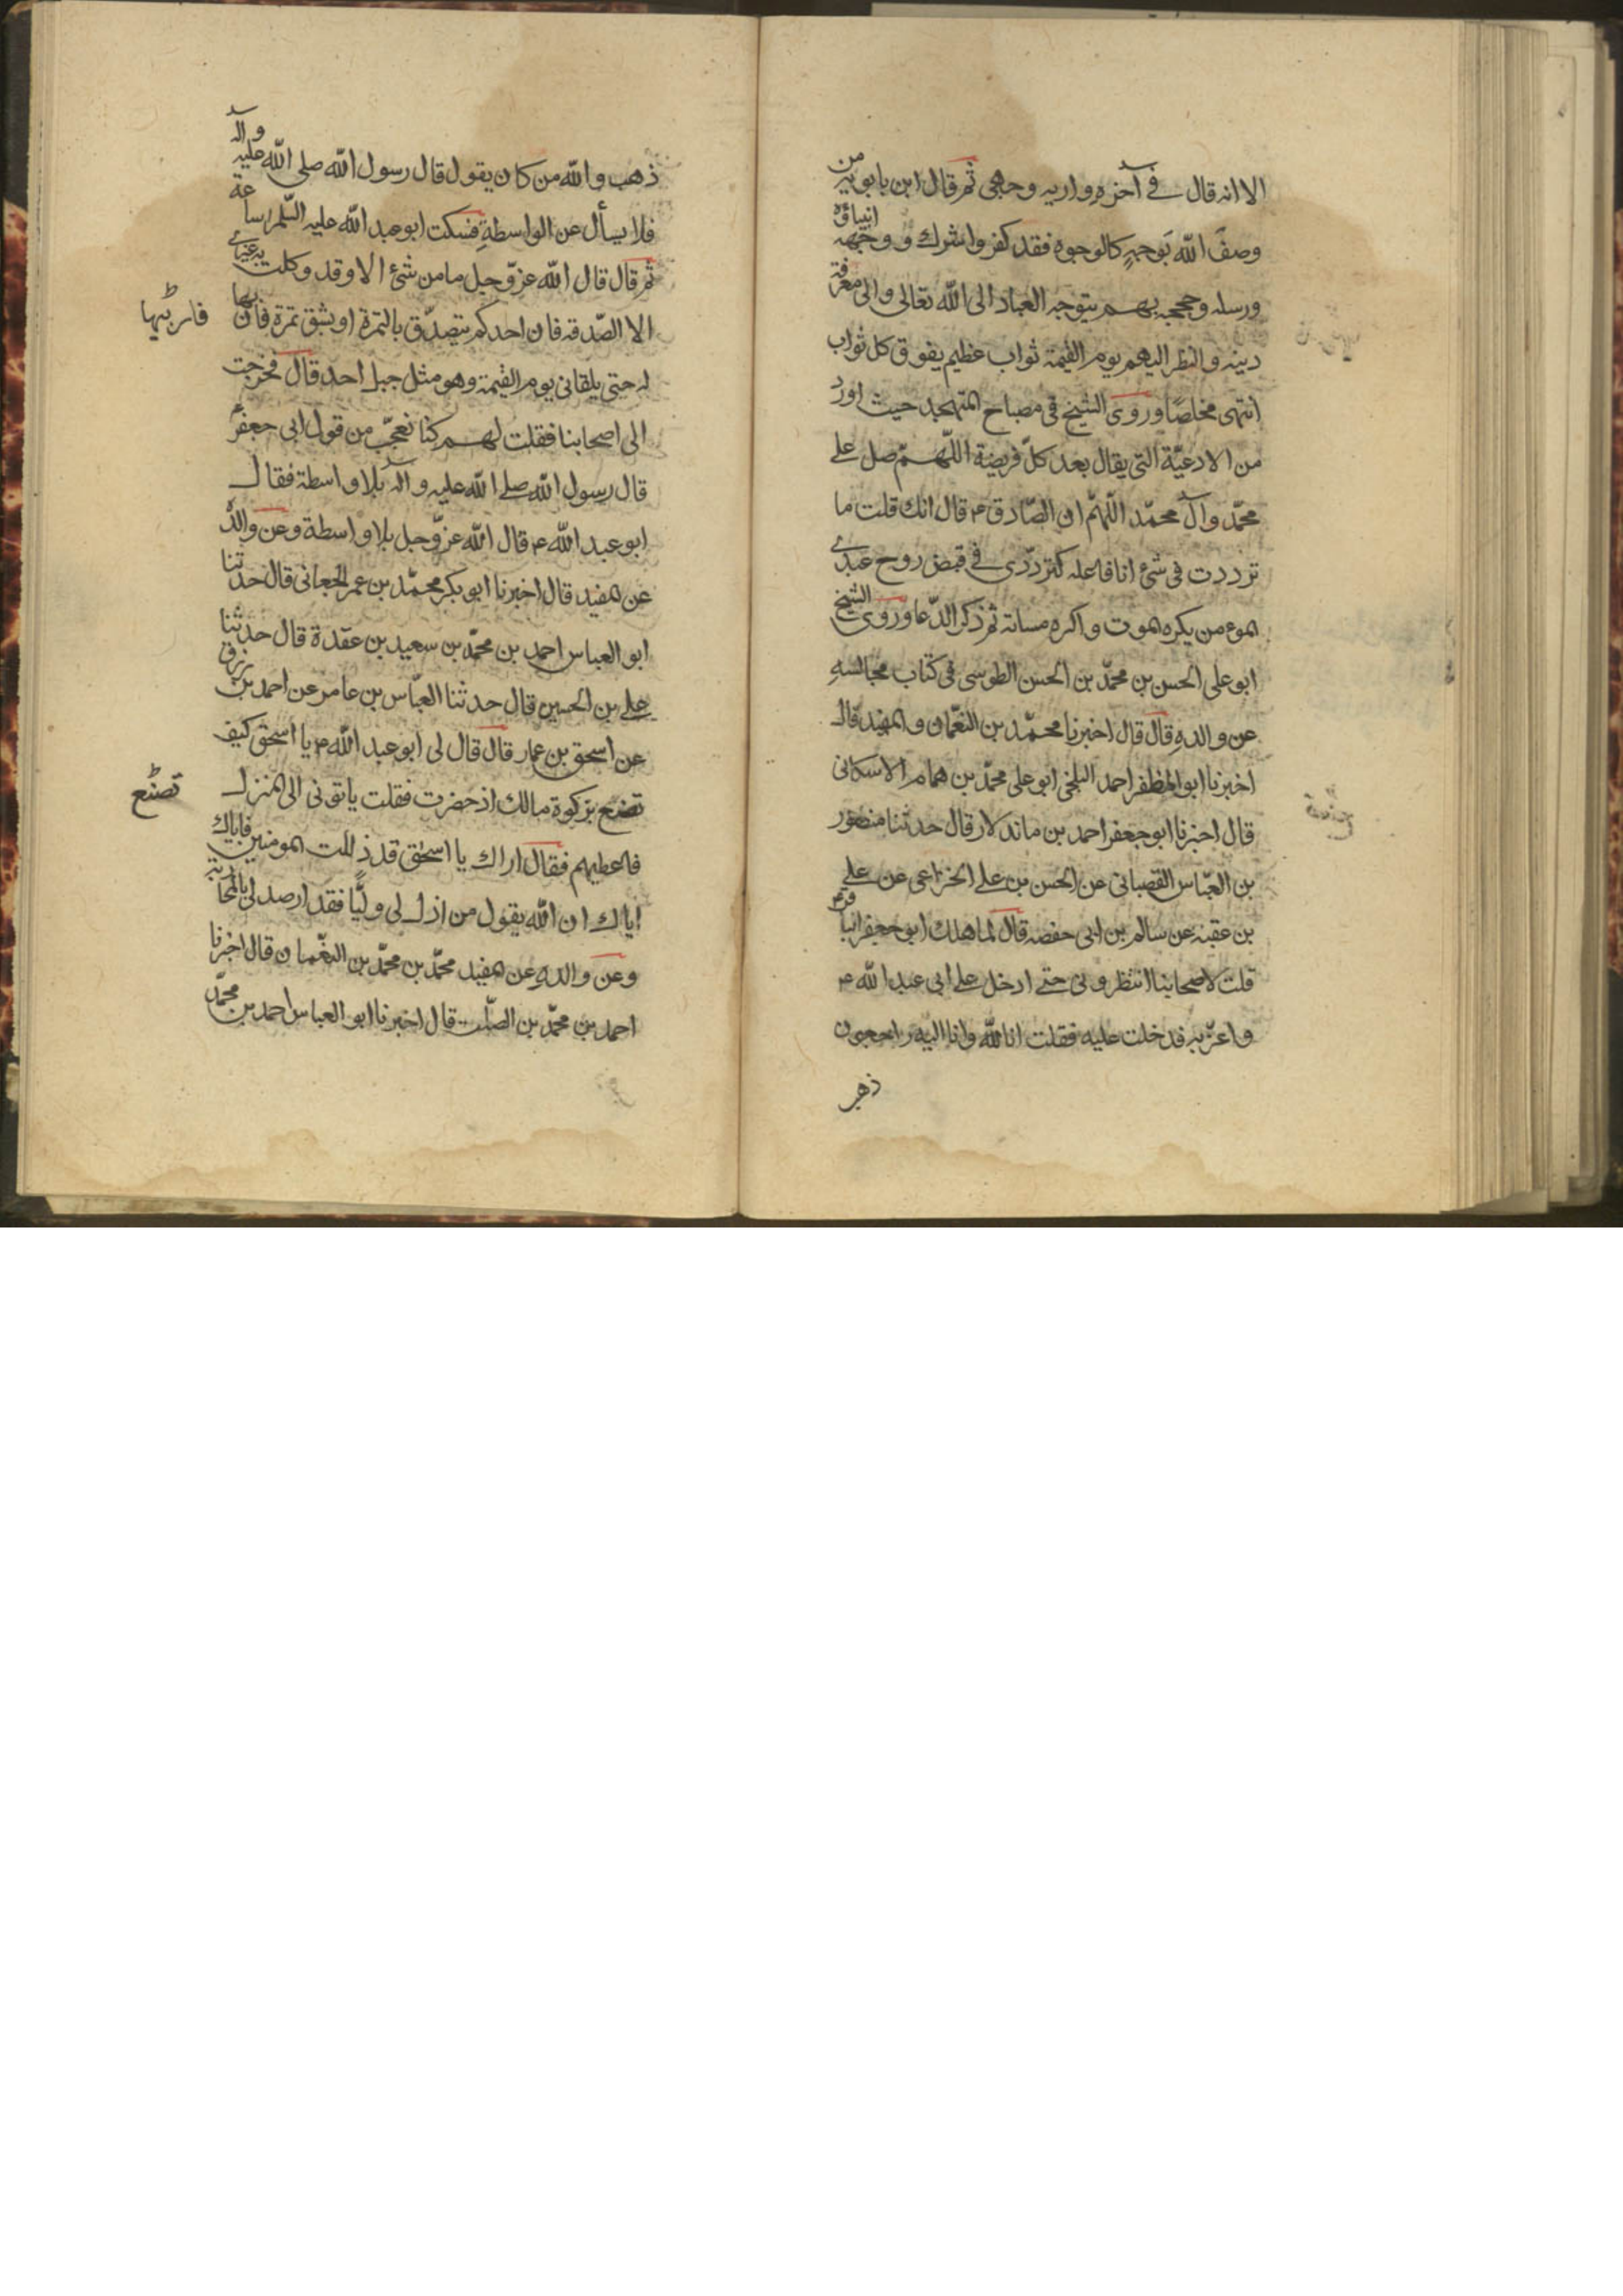 الا انه قال في آخره واريه وجهي ثم قال ابن بابويه من
وصف الله بوجهٍ كالوجوه فقد كفر واشرك ووجهه انبياؤه
ورسله وحججه بهم يتوجه العباد الى الله تعالى والى معرفة
دينه والنظر اليهم يوم القيمة ثواب عظيم يفوق كل ثواب
انتهى مخلصًا وروى الشيخ في مصباح المتهجد حيث اورد
من الادعيّة التي يقال بعد كلّ فريضة اللّهمّ صل على
محمّد وآل محمّد اللّهمّ ان الصّادق ع قال انك قلت ما
ترددت في شئ انا فاعله كترددّى في قبض روح عبدي
المومن يكره الموت واكره مساته ثم ذكر الدّعا وروى الشيخ
ابو على الحسن بن محمّد بن الحسن الطوسى فى كتاب مجالسهِ
عن والدهِ قال قال اخبرنا محمّد بن النعمان والمفيد قال
اخبرنا ابو المظفر احمد البلخي ابو على محمّد بن همام الاسكافى
قال اخبرنا ابو جعفر احمد بن مابندلار قال حدثنا منصور
بن العبّاس القصبانى عن الحسن بن على الخزاعى عن على
بن عقبه عن سالم بن ابى حفصه قال لما هلك ابو جعفر الباقر ع
قلت لاصحابنا انتظرونى حتى ادخل على ابى عبد الله ع
واعزّيه فدخلت عليه فقلت انا لله وانا اليه راجعون
ذهب
ذهب والله من كان يقول قال رسول الله صلى الله عليه وآله
فلا يسأل عن الواسطةِ فسكت ابو عبد الله عليه السّلم ساعة
ثم قال قال الله عزّ وجل ما من شئ الا وقد وكلت به غيرى
الا الصّدقه فان احدكم يتصدّق بالتمرة او بشق تمرة فان بها
فاربّيها
له حتى يلقانى يوم القيمة وهو مثل جبل احد قال فخرجت
الى اصحابنا فقلت لهم كنا نعجّب من قول ابى جعفرؑ
قال رسول الله صلى الله عليه وآله بلا واسطة فقال
ابو عبد الله ع قال الله عزّ وجل بلا واسطة وعن والدهُ
عن المفيد قال اخبرنا ابو بكر محمّد بن عمر الجعانى قال حدثنا
ابو العباس احمد بن محمّد بن سعيد بن عقدة قال حدثنا
على بن الحسين قال حدثنا العبّاس بن عامر عن احمد بن رزق
عن اسحق بن عمار قال قال لى ابو عبد الله ع يا اسحق كيف
تصنع بزكوة مالك اذ حضرت فقلت ياتونى الى المنزل
تصنع
فاعطيهم فقال اراك يا اسحٰق قد ذللت المومنين فاياك
اياك ان الله يقول من اذل لى وليًّا فقد ارصد لى بالمحاربة
وعن والدهِ عن المفيد محمّد بن محمّد بن النعّمان قال اخبرنا
احمد بن محمّد بن الصّلت قال اخبرنا ابو العباس احمد بن محمّد